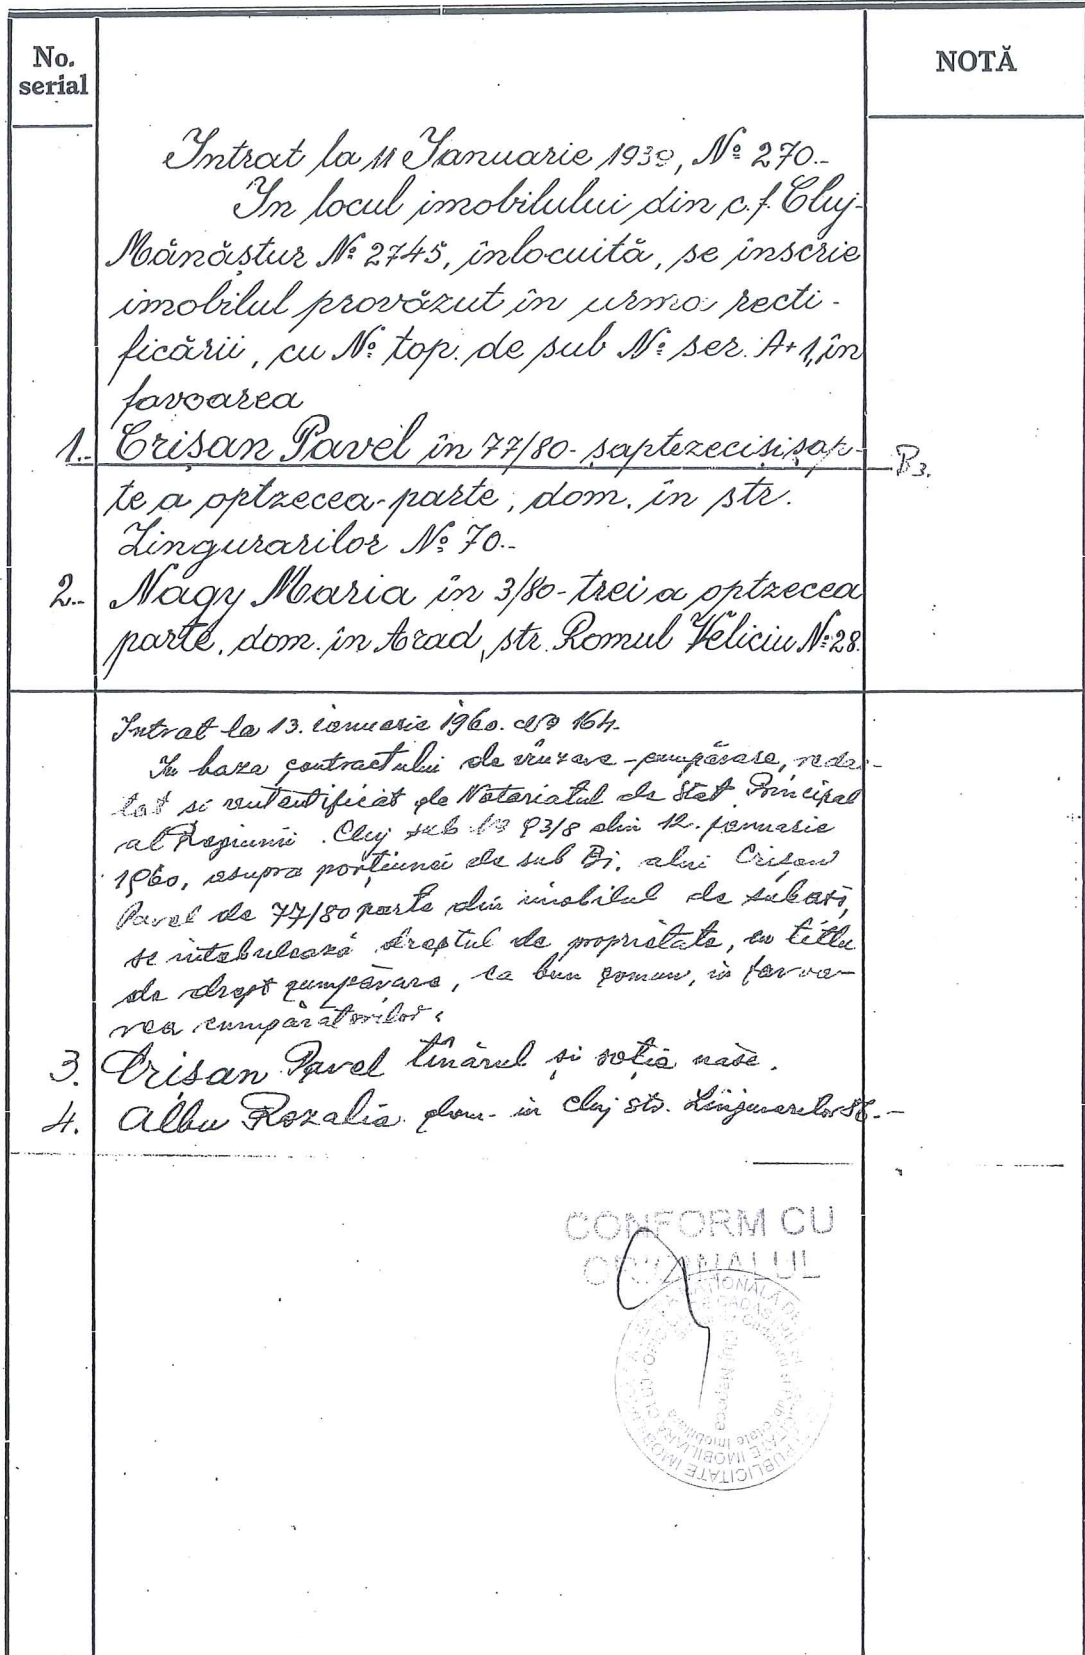 No.
serial
NOTĂ
Intrat la 11 Ianuarie 1939, Nº 270.-
In locul imobilului din c.f. Cluj-
Mănăștur Nº 2745, înlocuită, se înscrie
imobilul provăzut în urma recti-
ficării, cu Nº top. de sub Nº ser. A+1, în
favoarea
1.- Crișan Pavel în 77/80- șaptezecișișap- B3.
te a optzecea-parte, dom. în str.
Lingurarilor Nº 70.-
2.- Nagy Maria în 3/80- trei a optzecea
parte, dom. în Arad, str. Romul Veliciu Nº 28.
Intrat la 13. ianuarie 1960. Nº 164.
In baza contractului de vînzare-cumpărare, redac-
tat si autentificat de Notariatul de Stat Principal
al Regiunii Cluj sub Nº 93/8 din 12. januarie
1960, asupra porțiunei de sub B1. alui Crișan
Pavel de 77/80 parte din imobilul de sub
se intabulează dreptul de proprietate, cu titlu
de drept cumpărare, ca bun comun, in favoa-
rea cumpărătorilor:
3. Crișan Pavel tînărul și soția
4. Albu Rozalia dom. in Cluj str. Lingurarilor
CONFORM CU
ORIGINALUL
Cluj Napoca